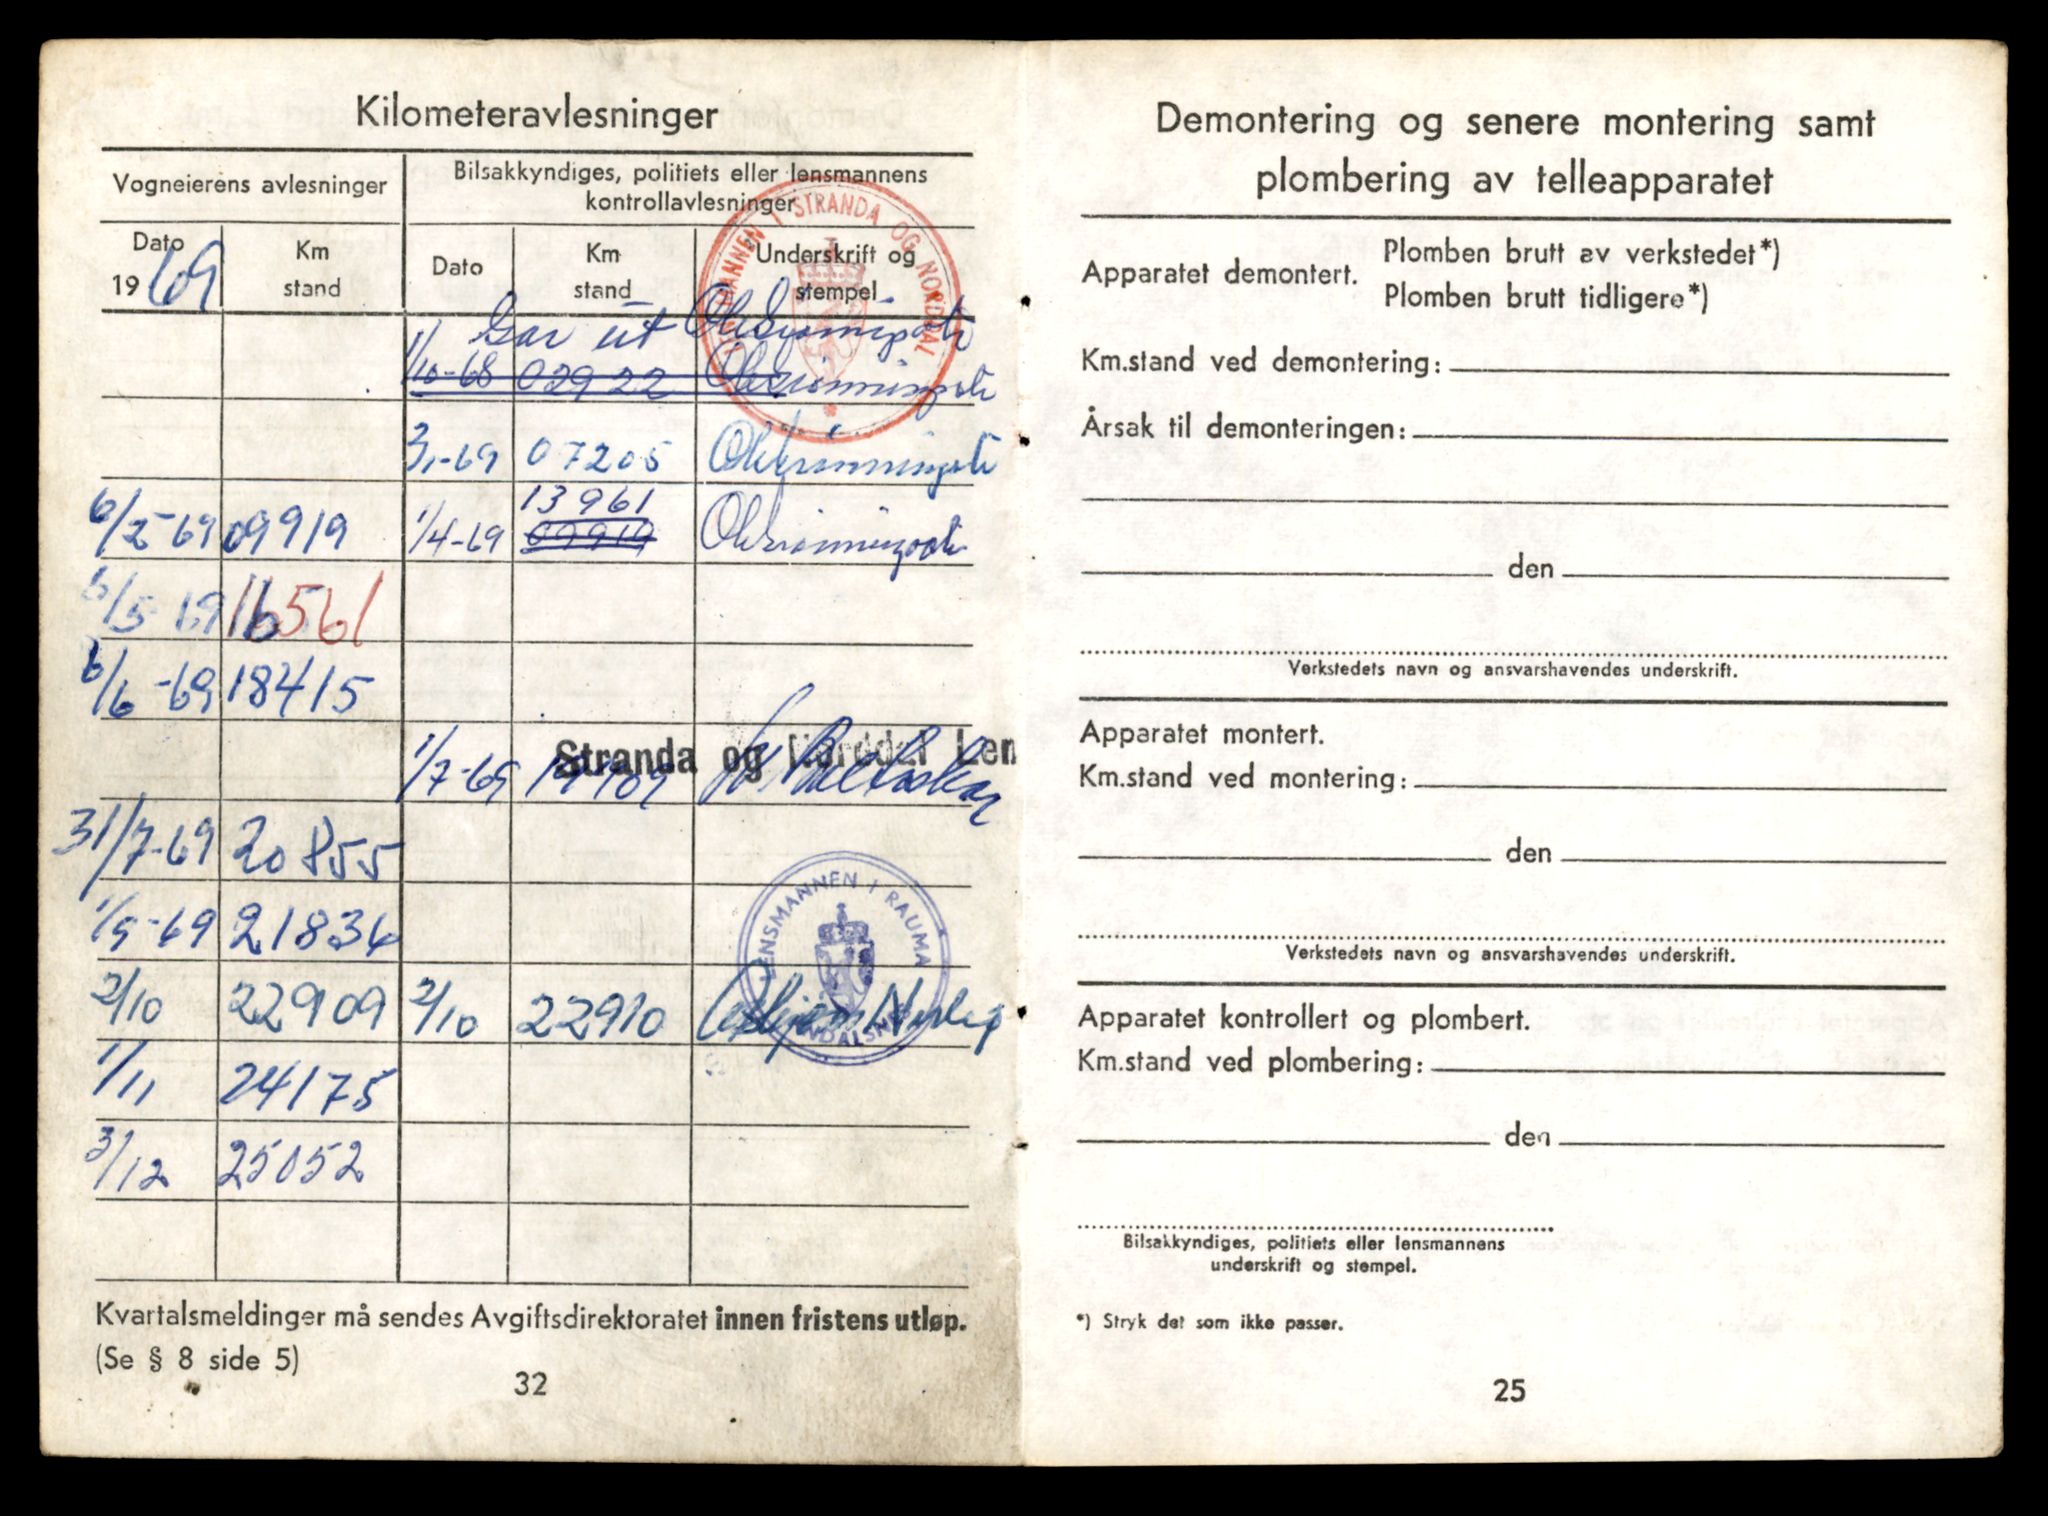 Kilometeravlesninger
Vogneierens avlesninger
Bilsakkyndiges, politiets eller lensmannens
kontrollavlesninger
Dato
1969
Km
stand
Dato
Km
stand
Underskrift og
stempel
LENSMANNEN I STRANDA OG NORDDAL
Gar ut
1/10-68 02922
3/1-69 07205
6/2-69 09919 1/4-69 13961
09919
6/5-69 16561
6/6-69 18415
Stranda og Norddal Len
1/7-69
31/7-69 20855
1/9-69 21836
LENSMANNEN I RAUMA
ÅNDALSNES
2/10 22909 2/10 22910
1/11 24175
3/12 25052
Kvartalsmeldinger må sendes Avgiftsdirektoratet innen fristens utløp.
(Se § 8 side 5)
32
Demontering og senere montering samt
plombering av telleapparatet
Apparatet demontert.
Plomben brutt av verkstedet*)
Plomben brutt tidligere*)
Km.stand ved demontering:
Årsak til demonteringen:
den
Verkstedets navn og ansvarshavendes underskrift.
Apparatet montert.
Km.stand ved montering:
den
Verkstedets navn og ansvarshavendes underskrift.
Apparatet kontrollert og plombert.
Km.stand ved plombering:
den
Bilsakkyndiges, politiets eller lensmannens
underskrift og stempel.
*) Stryk det som ikke passer.
25